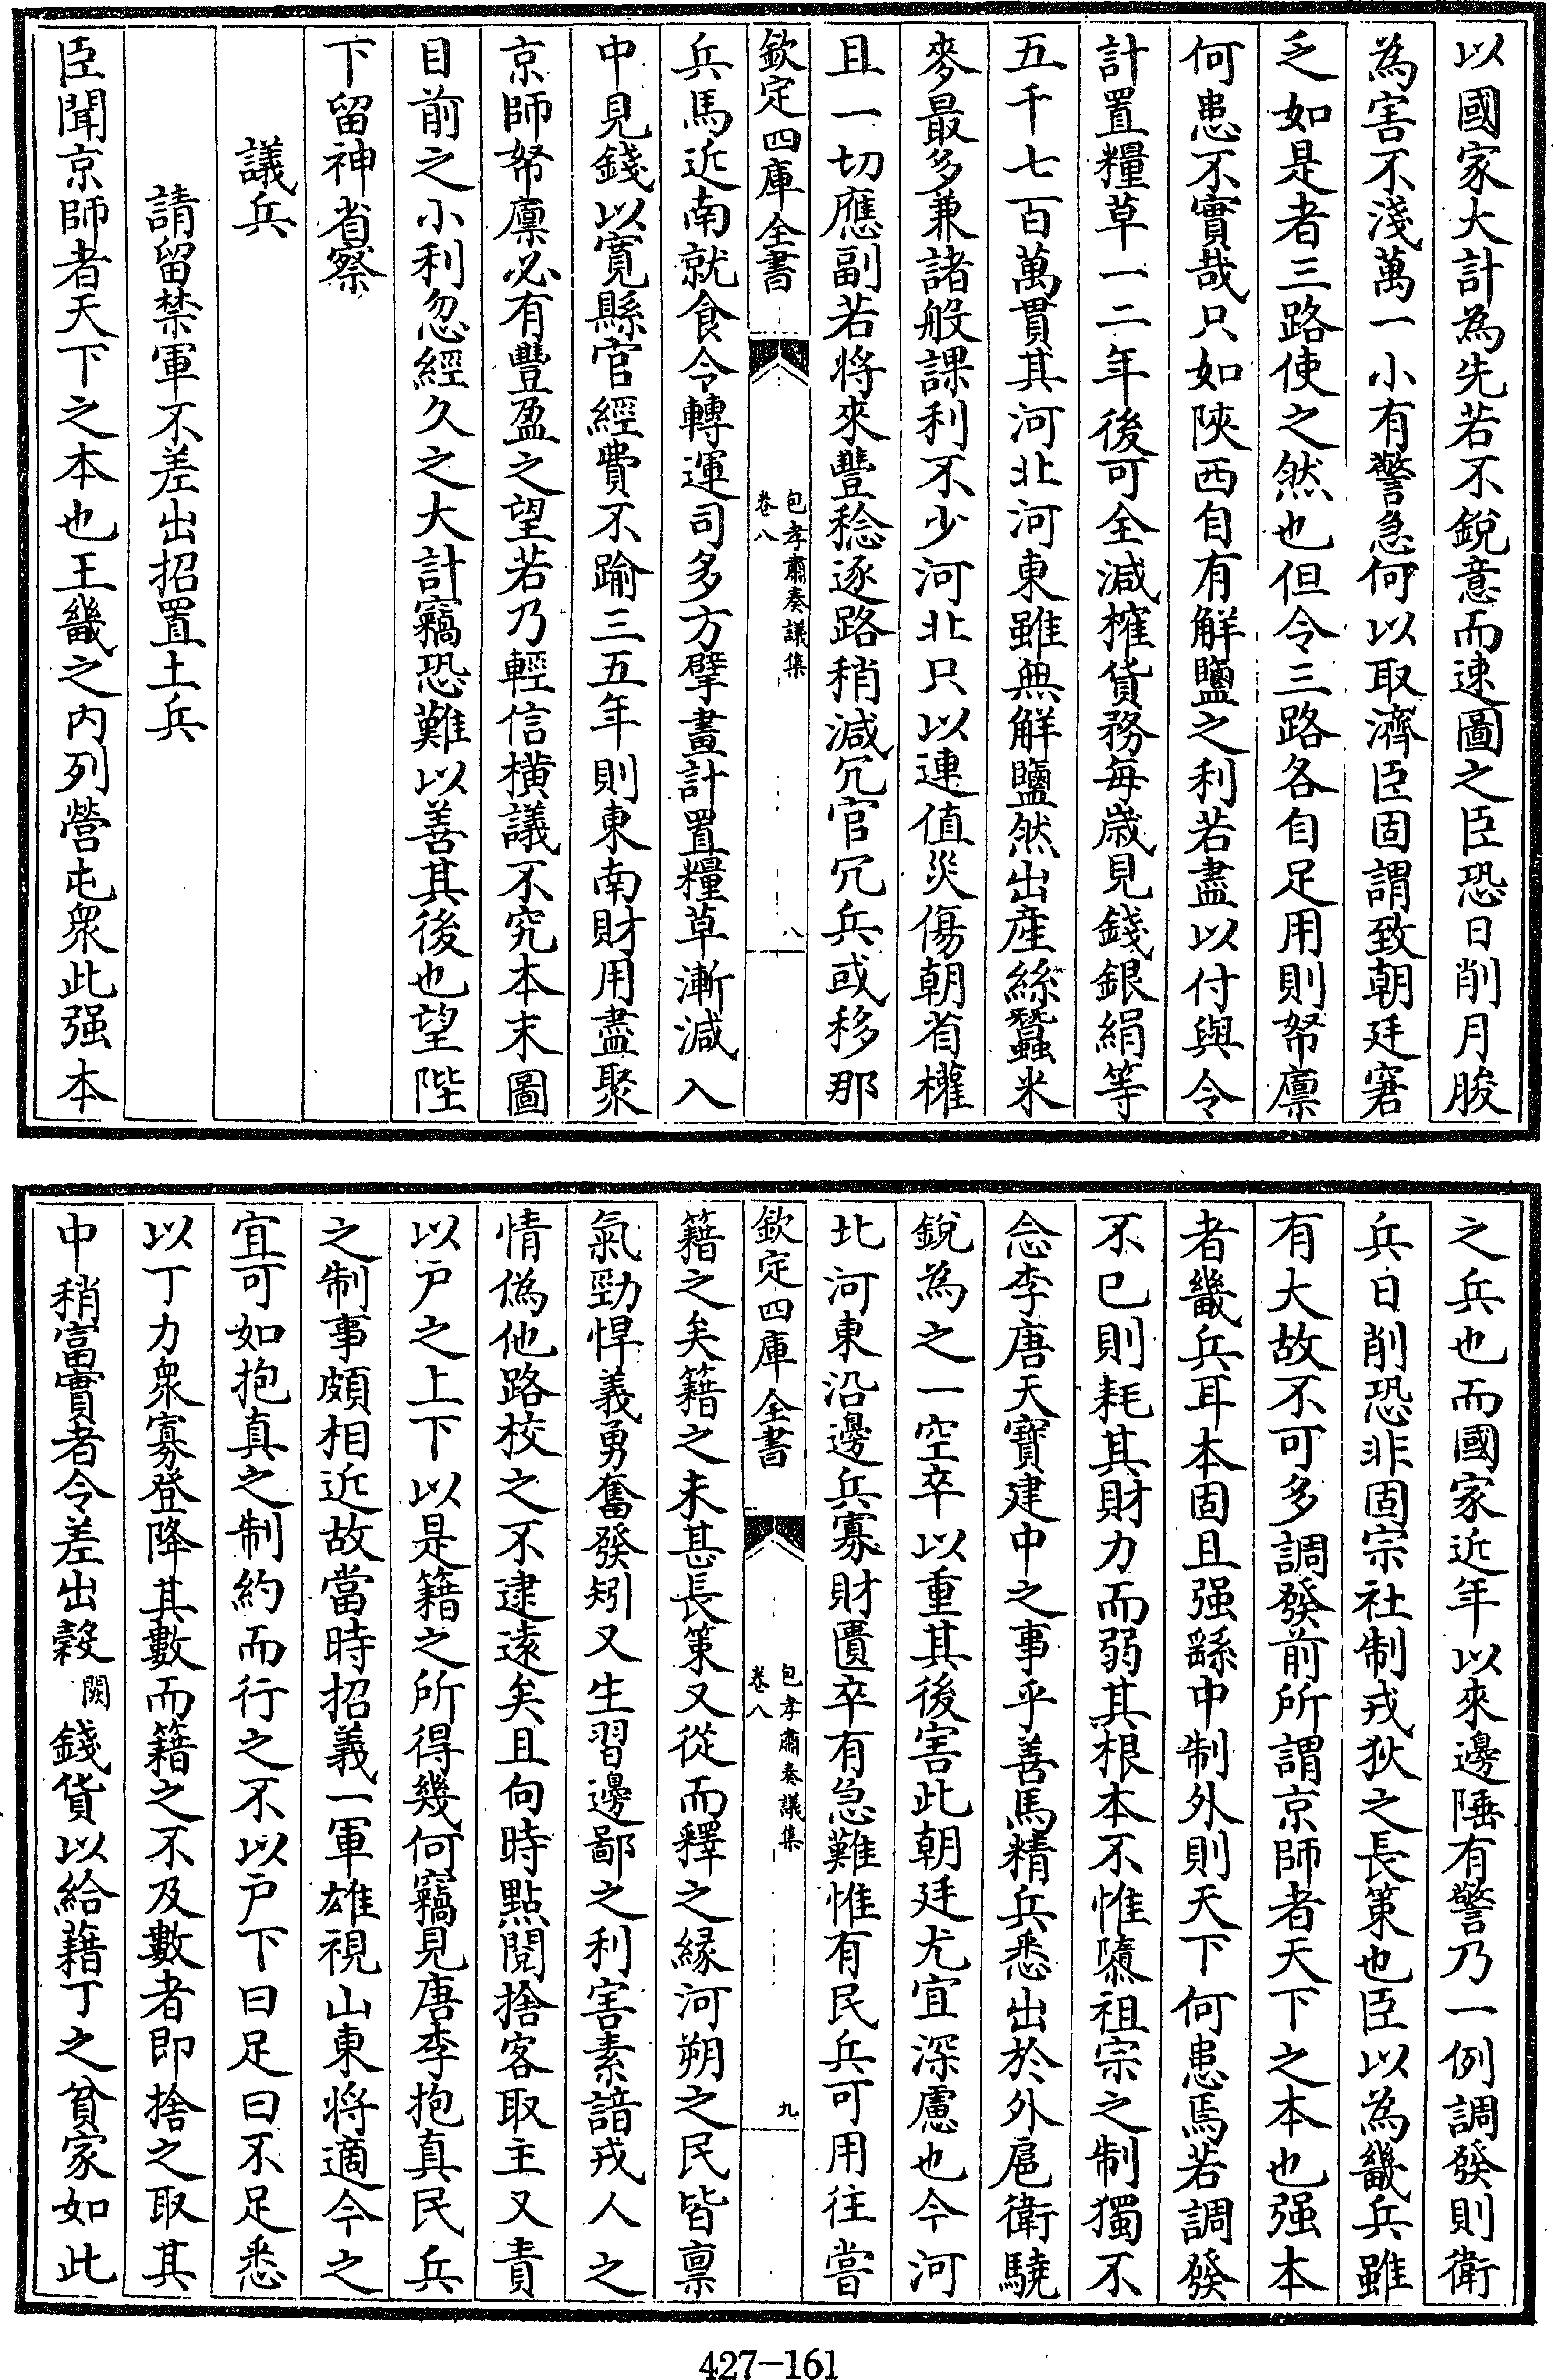 以國家大計為先若不銳意而速圖之臣恐日削月朘
為害不淺萬一小有警急何以取濟臣固謂致朝廷窘
乏如是者三路使之然也但令三路各自足用則帑廪
何患不實哉只如陜西自有解鹽之利若盡以付與令
計置糧草一二年後可全減榷貨務每歲見錢銀絹等
五千七百萬貫其河北河東雖無解鹽然出產絲蠶米
麥最多兼諸般課利不少河北只以連值災傷朝省權
且一切應副若將來豐稔逐路稍減冗官冗兵或移那
欽定四庫全書
包孝肅奏議集
卷八
八
兵馬近南就食令轉運司多方擘畫計置糧草漸減入
中見錢以寛縣官經費不踰三五年則東南財用盡聚
京師帑廪必有豐盈之望若乃輕信横議不究本末圖
目前之小利忽經久之大計竊恐難以善其後也望陛
下留神省察
議兵
請留禁軍不差出招置土兵
臣聞京師者天下之本也王畿之内列營屯衆此强本
之兵也而國家近年以來邊陲有警乃一例調發則衛
兵日削恐非固宗社制戎狄之長策也臣以為畿兵雖
有大故不可多調發前所謂京師者天下之本也强本
者畿兵耳本固且强繇中制外則天下何患焉若調發
不已則耗其財力而弱其根本不惟隳祖宗之制獨不
念李唐天寶建中之事乎善馬精兵悉出於外扈衛驍
銳為之一空卒以重其後害此朝廷尤宜深慮也今河
北河東沿邊兵寡財匱卒有急難惟有民兵可用往嘗
欽定四庫全書
包孝肅奏議集
卷八
九
籍之矣籍之未甚長策又從而釋之緣河朔之民皆禀
氣勁悍義勇奮發矧又生習邊鄙之利害素諳戎人之
情偽他路校之不逮逺矣且向時點閱捨客取主又責
以户之上下以是籍之所得幾何竊見唐李抱真民兵
之制事頗相近故當時招義一軍雄視山東將適今之
宜可如抱真之制約而行之不以户下曰足曰不足悉
以丁力衆寡登降其數而籍之不及數者即捨之取其
中稍富實者令差出榖闕錢貨以給藉丁之貧家如此
427-161